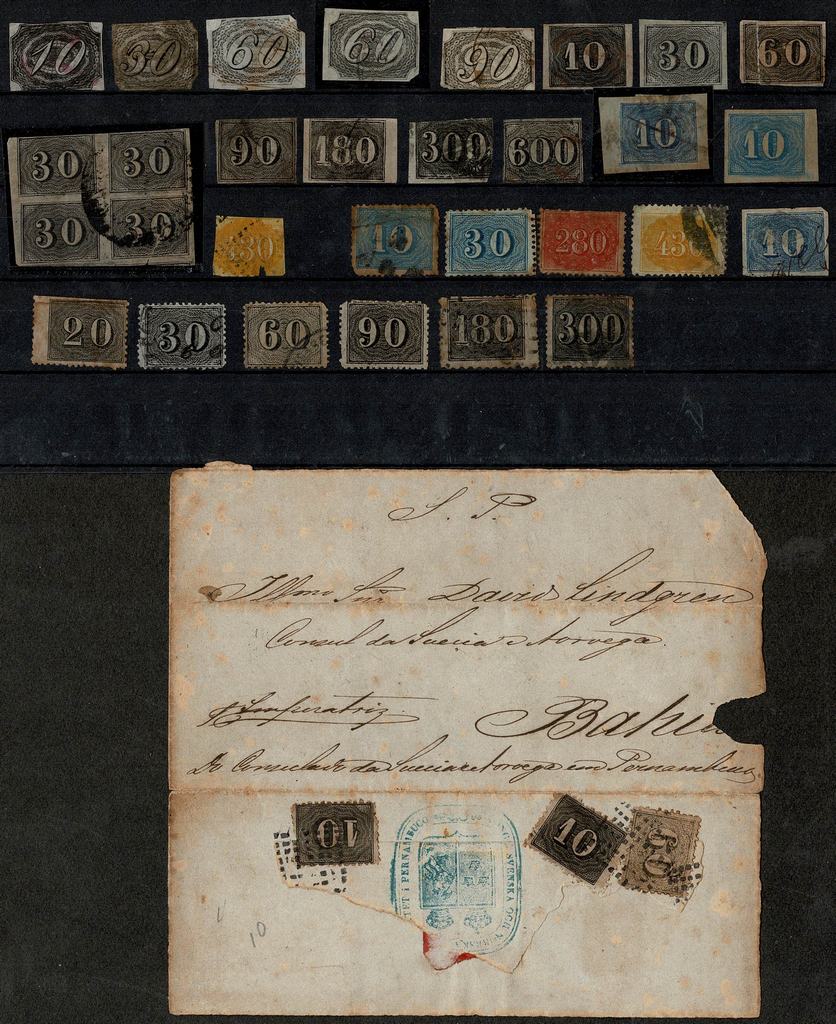 10 30 60 60 90 10 30 60
30 30 90 180 300 600 10 10
30 30
430 10 30 280 430 10
20 30 60 90 180 300
S. P.
Illmo Snr. David Lindgren
Consul da Suecia e Noruega
p Imperatriz
Bahia
Do Consulado da Suecia e Noruega em Pernambuco
10 10 60
PERNAMBUCO
SVENSKA OCH NORSKA
10